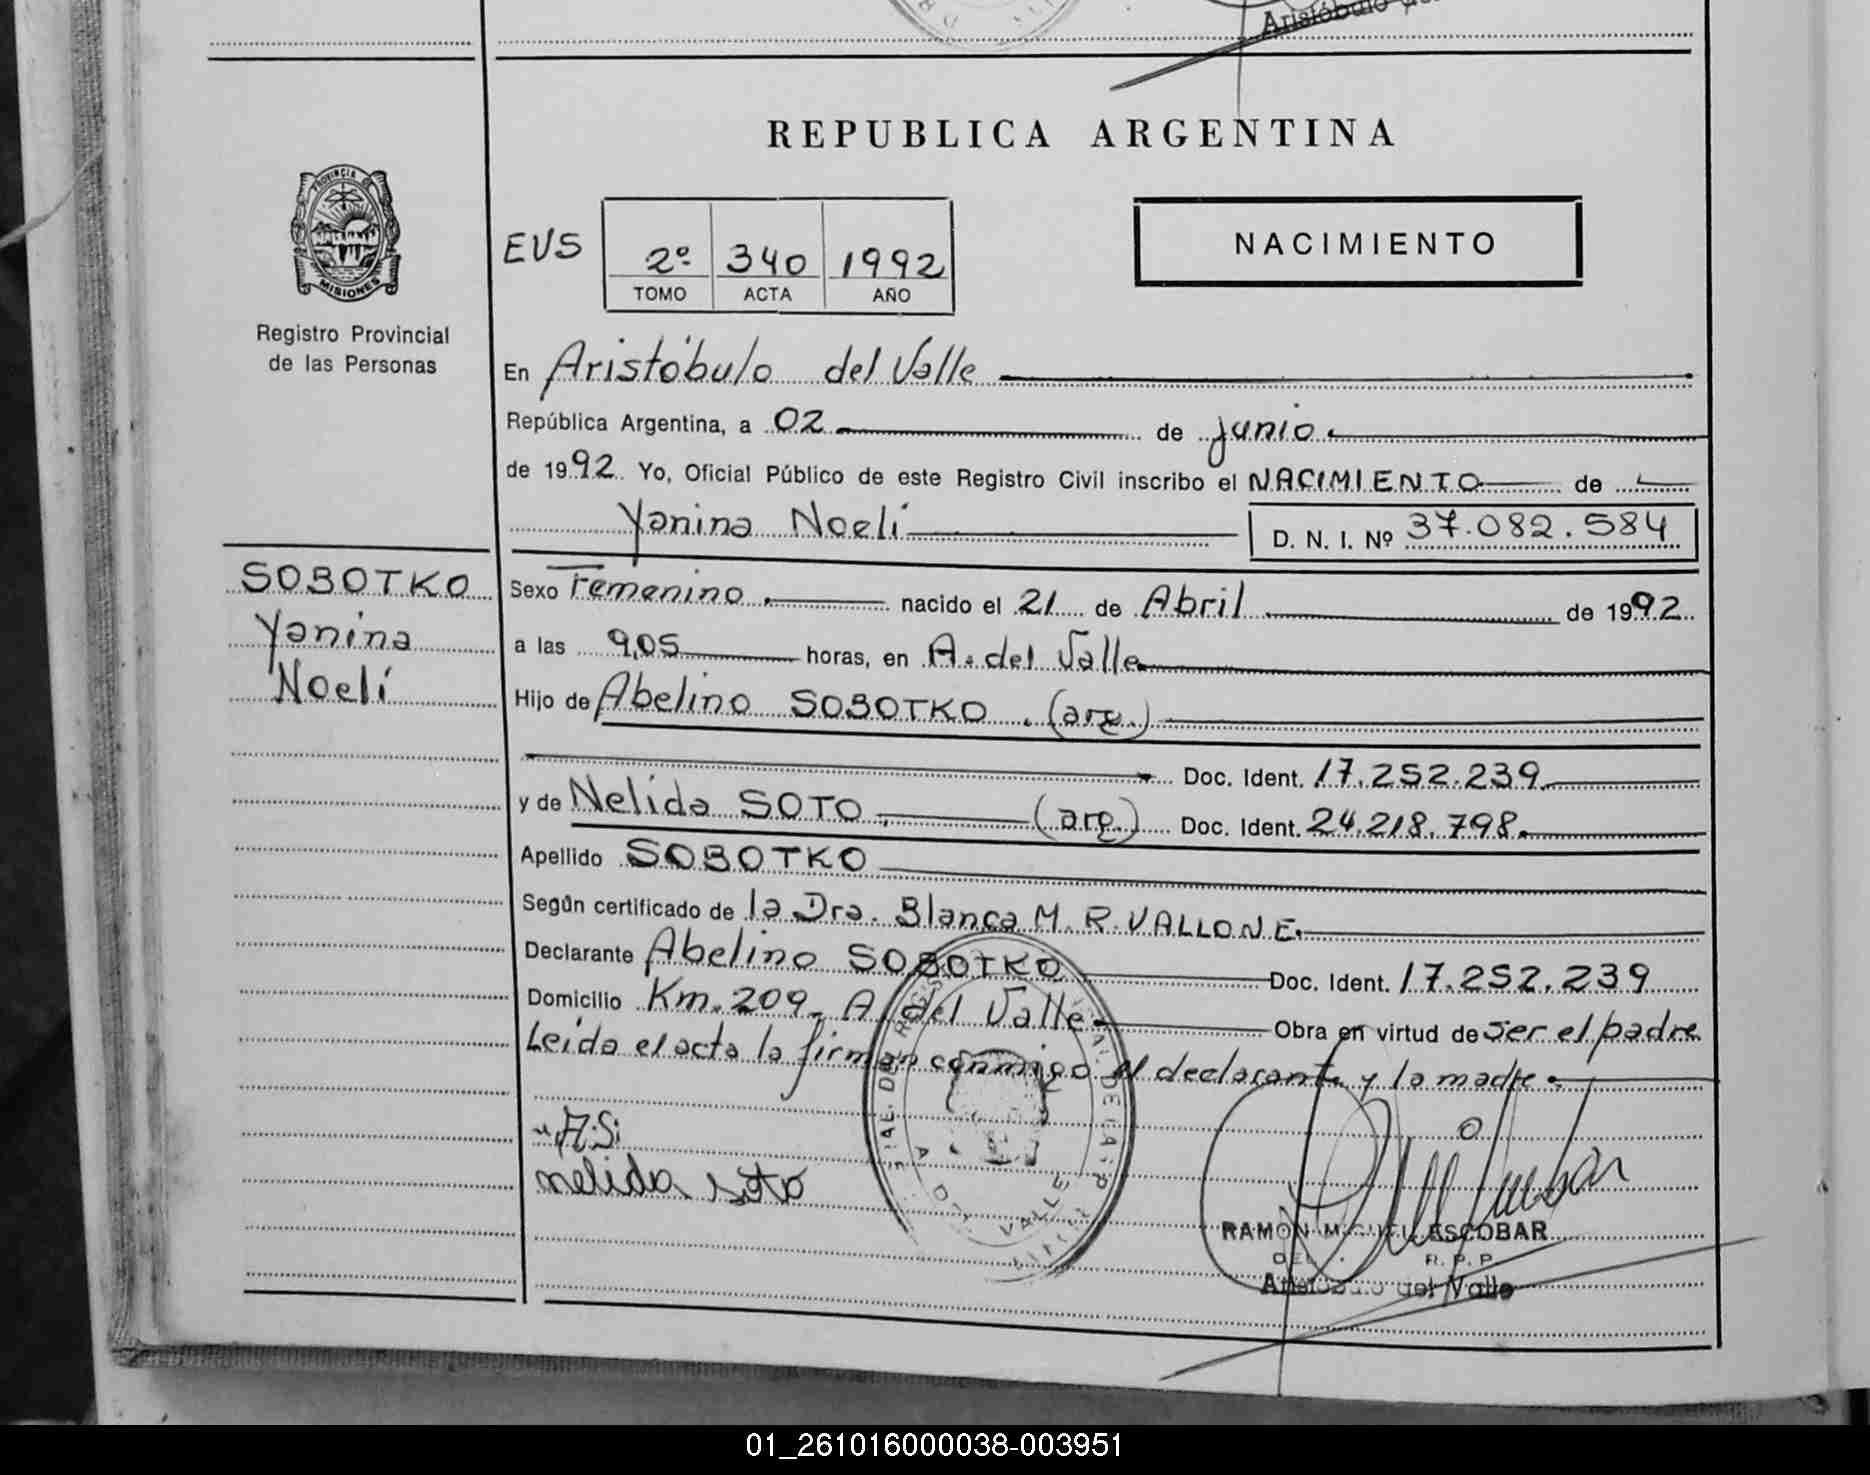 Aristóbulo
REPUBLICA ARGENTINA
PROVINCIA DE
MISIONES
Registro Provincial
de las Personas
EVS
2º 340 1992
TOMO ACTA AÑO
NACIMIENTO
En Aristóbulo del Valle
República Argentina, a 02 de junio
de 1992 Yo, Oficial Público de este Registro Civil inscribo el NACIMIENTO de
Yanina Noelí
D. N. I. Nº 37.082.584
SOBOTKO
Yanina
Noelí
Sexo Femenino. nacido el 21 de Abril de 1992
a las 9,05 horas, en A. del Valle
Hijo de Abelino SOBOTKO. (arg.)
Doc. Ident. 17.252.239
y de Nelida SOTO (arg.) Doc. Ident. 24.218.798
Apellido SOBOTKO
Según certificado de la Dra. Blanca M. R. VALLONE
Declarante Abelino SOBOTKO Doc. Ident. 17.252.239
Domicilio Km. 209 A. del Valle Obra en virtud de ser el padre
Leida el acta la firman conmigo el declarante y la madre
A.S.
nelida soto
VALLE
RAMON MIGUEL ESCOBAR
R. P. P.
Aristóbulo del Valle
01_261016000038-003951